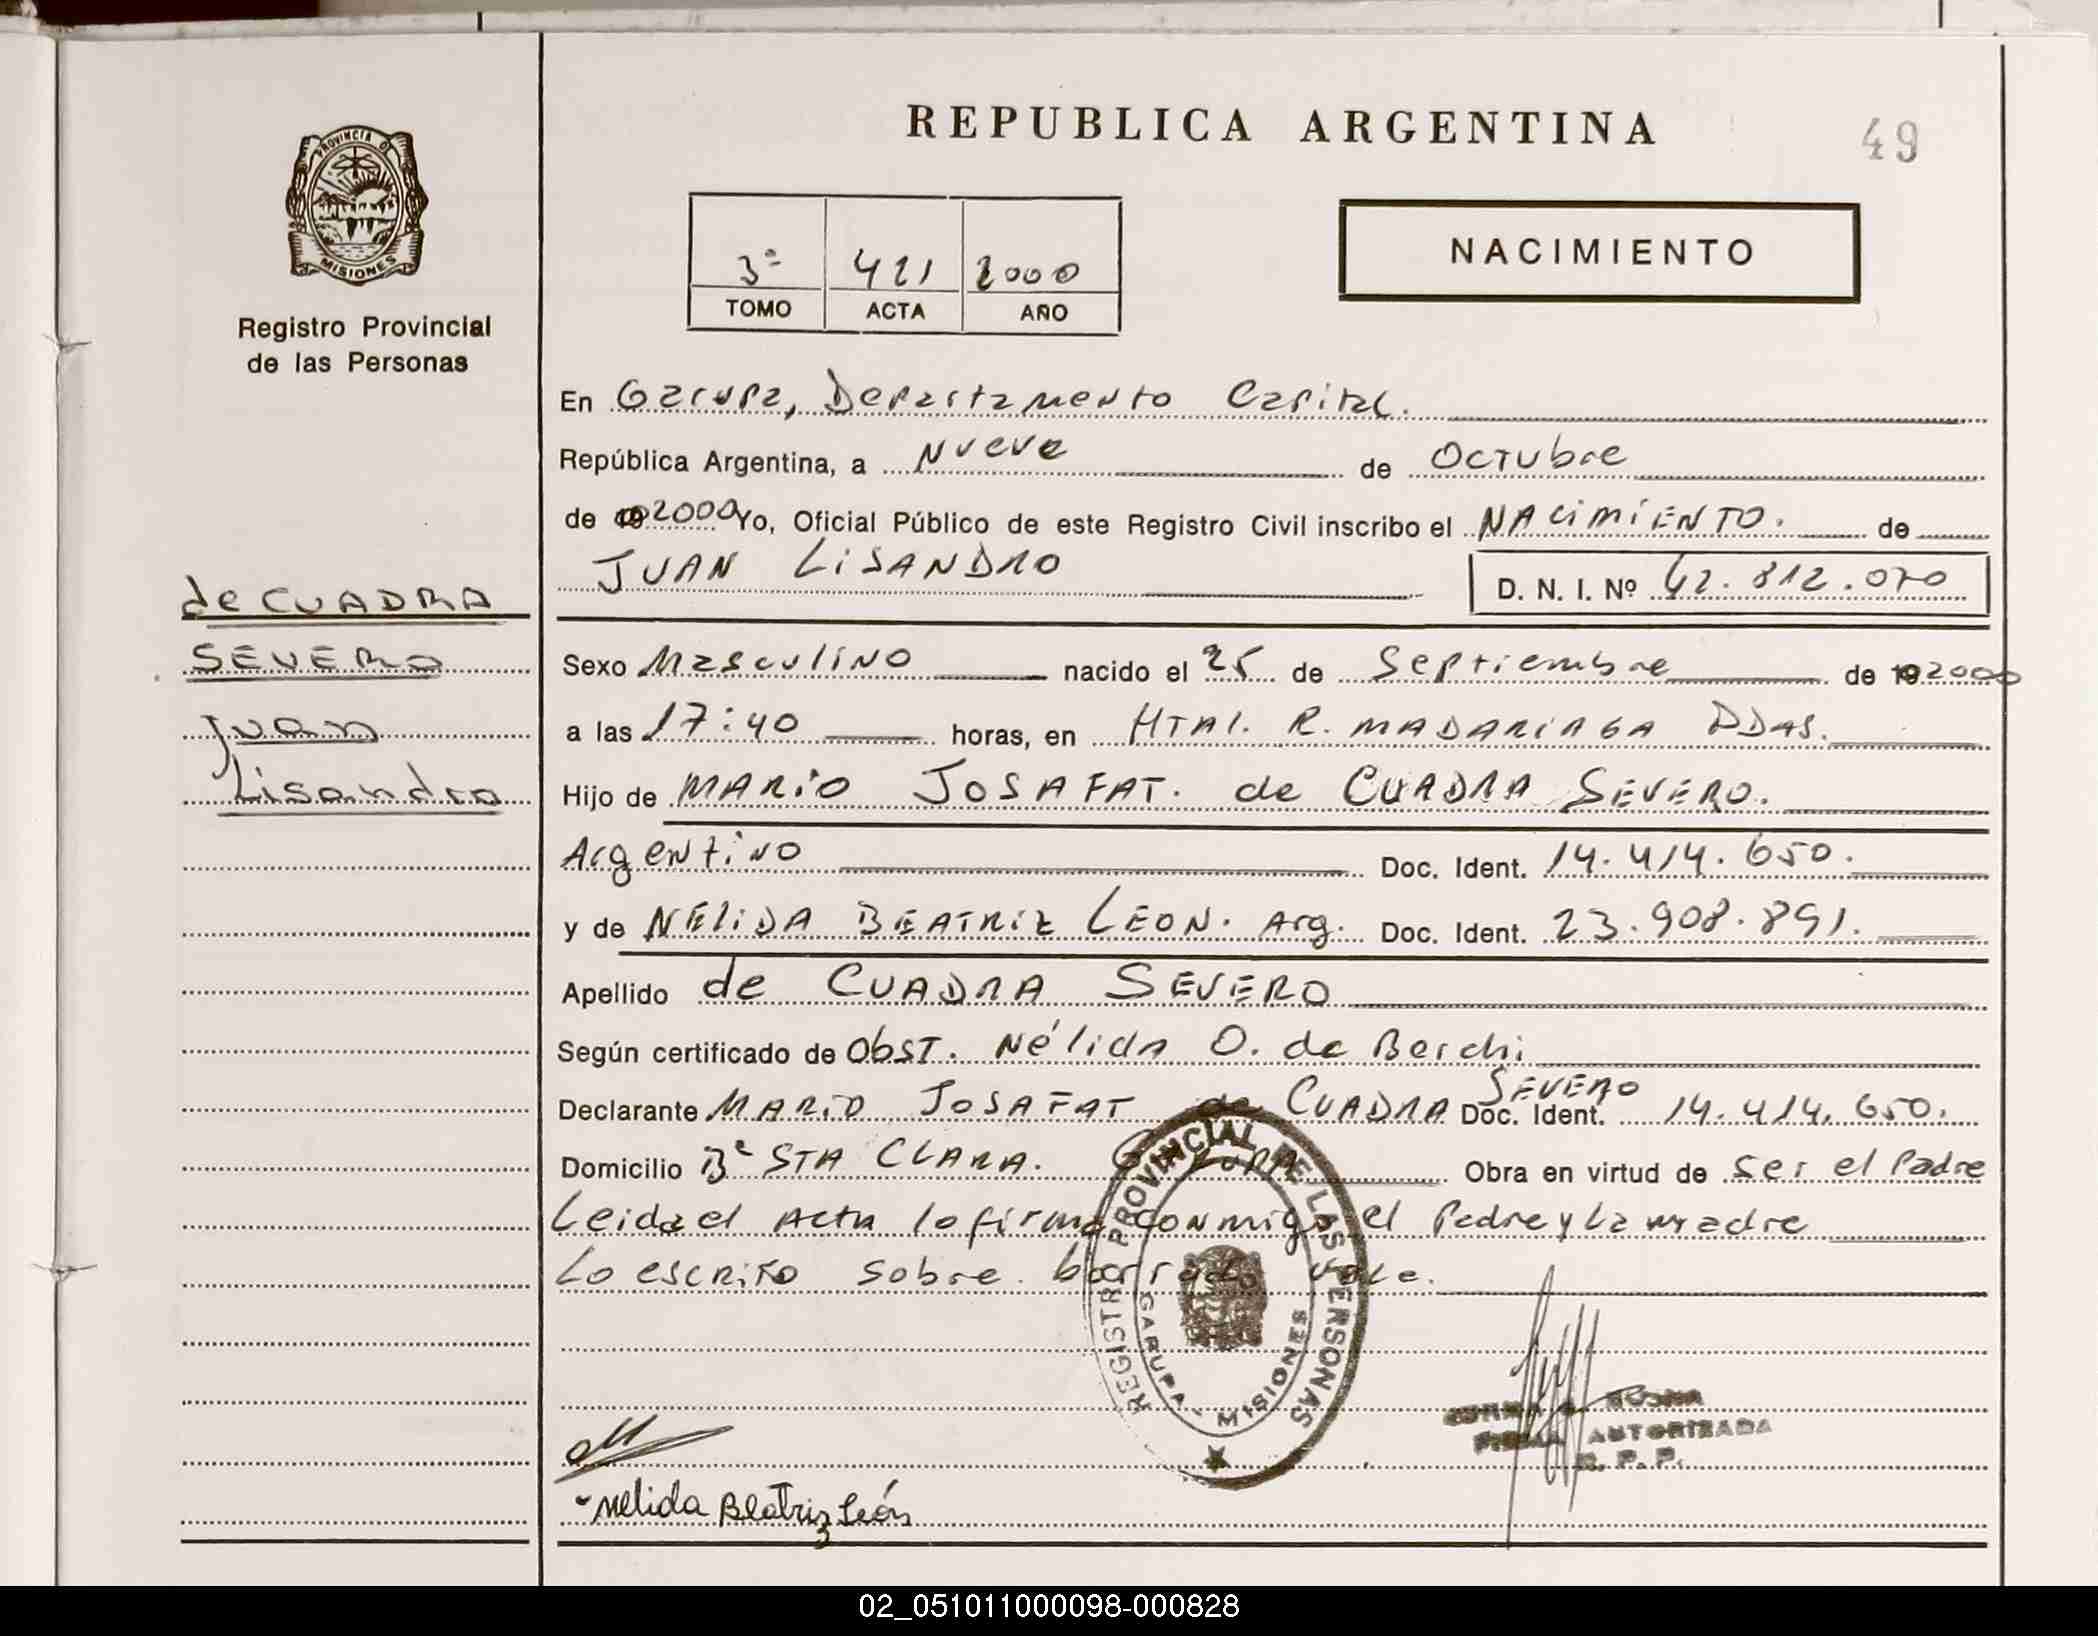 REPUBLICA ARGENTINA
49
PROVINCIA D
MISIONES
Registro Provincial
de las Personas
3ª 421 2000
TOMO ACTA AÑO
NACIMIENTO
En Garupa, Departamento Capital.
República Argentina, a Nueve de Octubre
de 19 2000 Yo, Oficial Público de este Registro Civil inscribo el NACIMIENTO. de
JUAN LISANDRO D. N. I. Nº 42.812.070
de CUADRA
SEVERO
Juan
Lisandro
Sexo Masculino nacido el 25 de Septiembre de 19 2000
a las 17:40 horas, en HTAl. R. MADARIAGA PDAS.
Hijo de MARIO JOSAFAT. de CUADRA SEVERO.
Argentino Doc. Ident. 14.414.650.
y de NELIDA BEATRIZ LEON. Arg. Doc. Ident. 23.908.891.
Apellido de CUADRA SEVERO
Según certificado de ObsT. Nélida O. de Berchi
Declarante MARIO JOSAFAT de CUADRA SEVERO Doc. Ident. 14.414.650.
Domicilio Bº STA CLARA. GARUPA Obra en virtud de ser el Padre
Leida el Acta lo firma conmigo el Padre y La madre
Lo escrito sobre borrado vale.
REGISTRO PROVINCIAL DE LAS PERSONAS
GARUPA - MISIONES
FIRMA AUTORIZADA
R. P. P.
Nelida Beatriz León
02_051011000098-000828